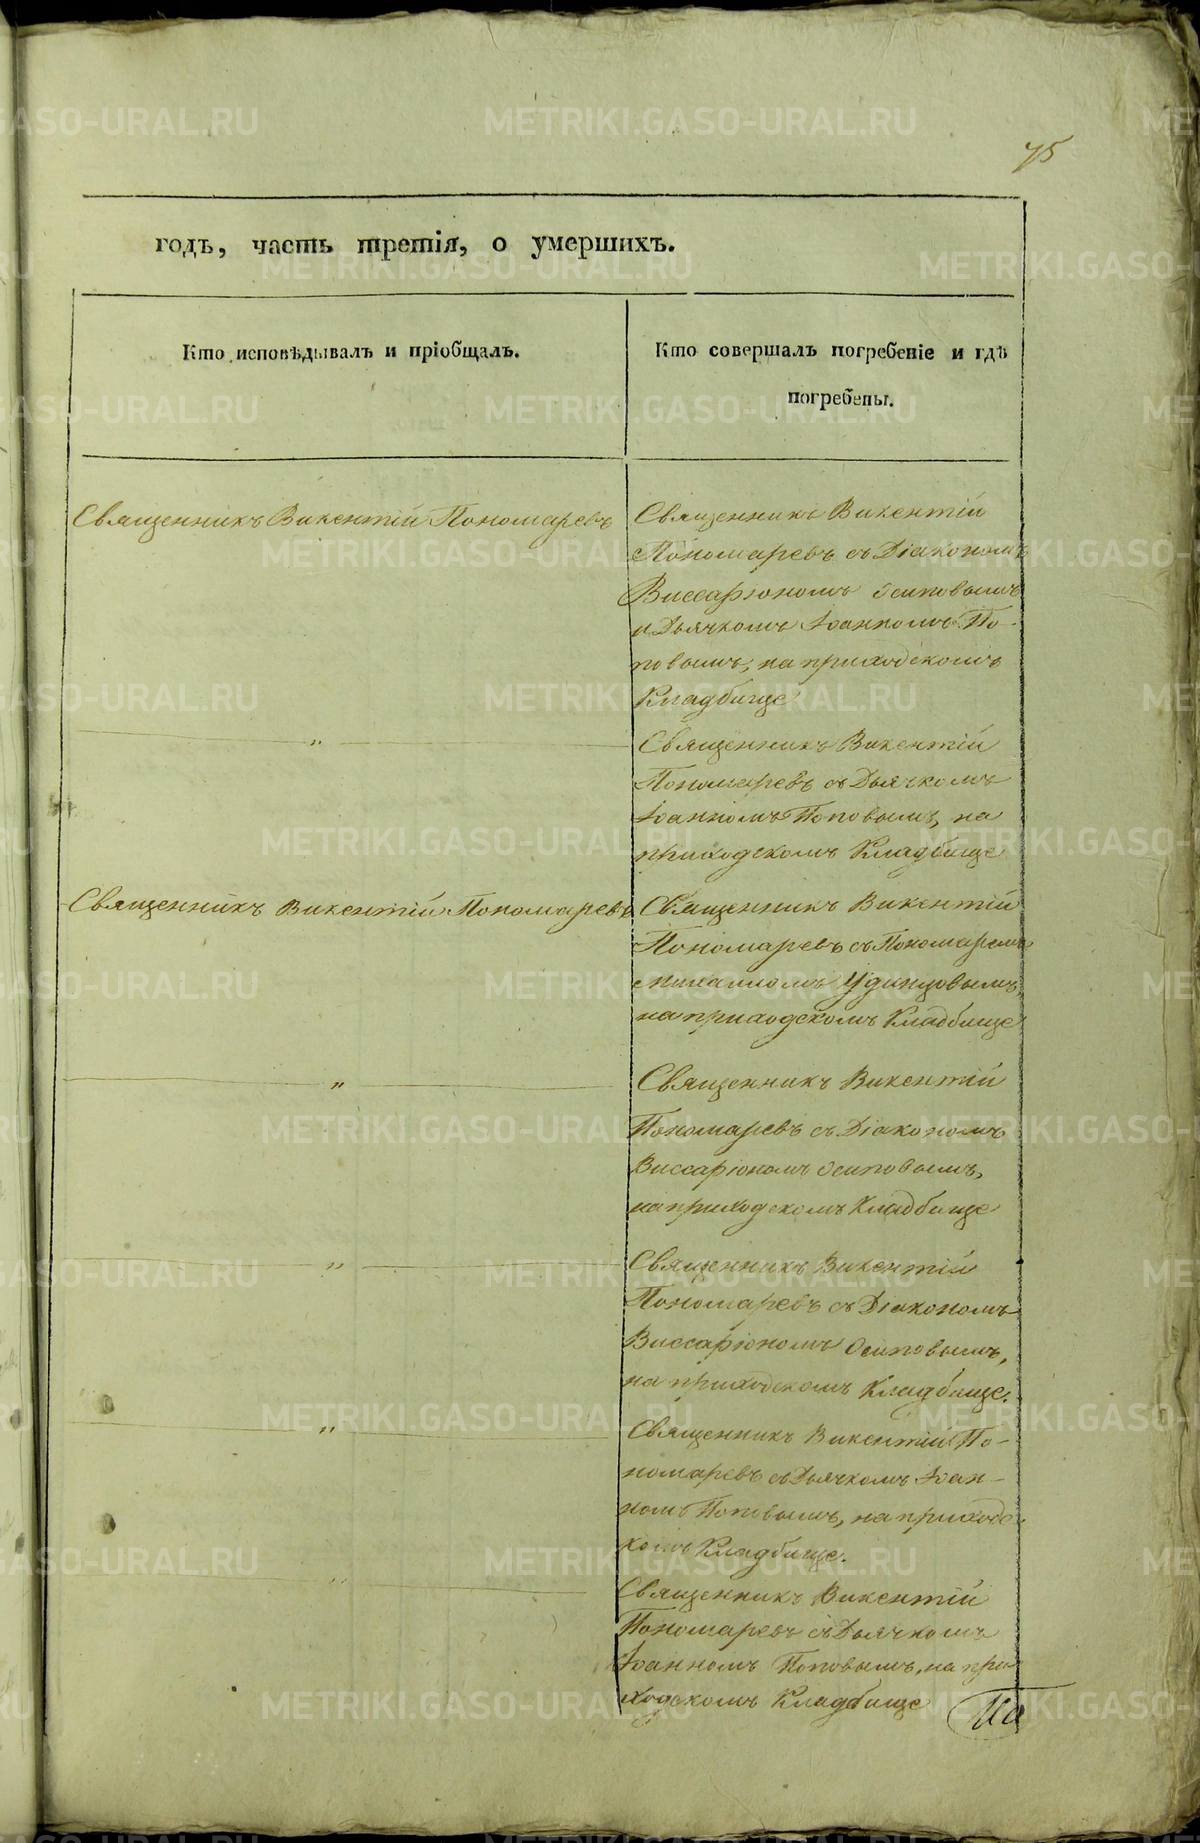 75
годъ, часть третія, о умершихъ.
Кто исповѣдывалъ и пріобщалъ.
Кто совершалъ погребеніе и гдѣ
погребены.
Священникъ Викентій Пономаревъ
Священникъ Викентій
Пономаревъ съ Діакономъ
Виссаріономъ Осиповымъ
и Дьячкомъ Іоанномъ По-
повымъ, на приходскомъ
Кладбище
„
Священникъ Викентій
Пономаревъ съ Дьячкомъ
Іоанномъ Поповымъ, на
приходскомъ Кладбище
Священникъ Викентій Пономаревъ
Священникъ Викентій
Пономаревъ съ Пономаремъ
Михаиломъ Удинцовымъ,
на приходскомъ Кладбище
„
Священникъ Викентій
Пономаревъ съ Діакономъ
Виссаріономъ Осиповымъ,
на приходскомъ Кладбище
„
Священникъ Викентій
Пономаревъ съ Діакономъ
Виссаріономъ Осиповымъ,
на приходскомъ Кладбище.
„
Священникъ Викентій По-
номаревъ съ Дьячкомъ Іоан-
номъ Поповымъ, на приходс-
комъ Кладбище.
„
Священникъ Викентій
Пономаревъ съ Дьячкомъ
Іоанномъ Поповымъ, на при-
ходскомъ Кладбище
METRIKI.GASO-URAL.RU